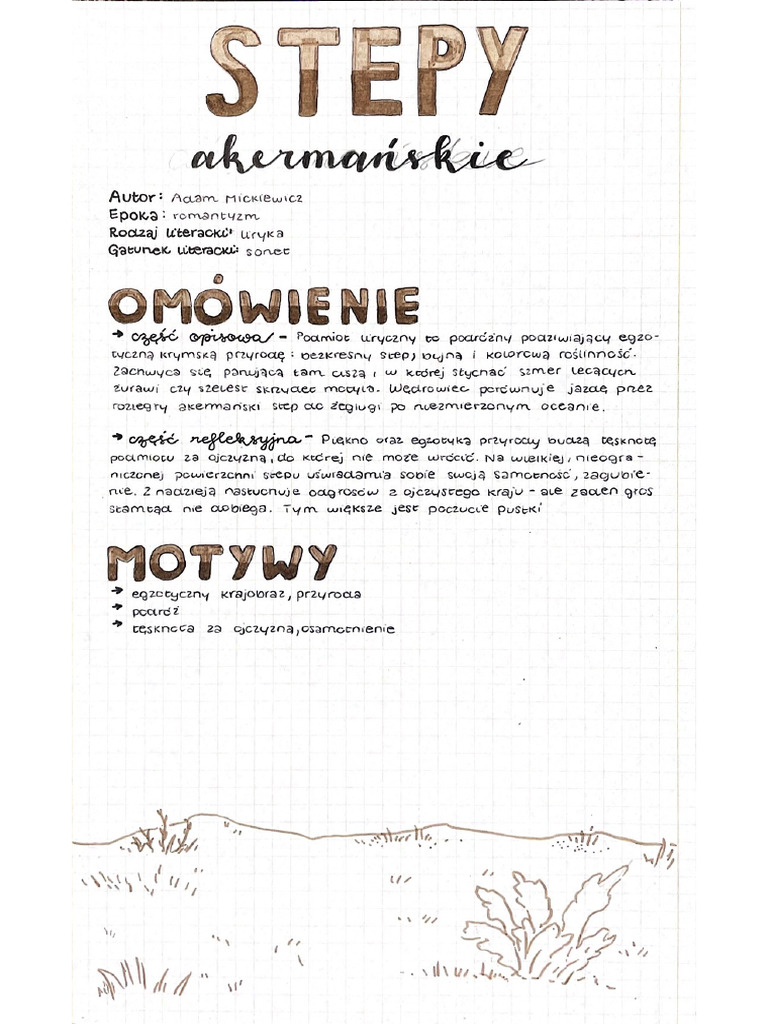 STEPY
akermańskie
Autor: Adam Mickiewicz
Epoka: romantyzm
Rodzaj literacki: liryka
Gatunek literacki: sonet
OMÓWIENIE
→ część opisowa – Podmiot liryczny to podróżny podziwiający egzo-
tyczną krymską przyrodę: bezkresny step, bujną i kolorową roślinność.
Zachwyca się panującą tam ciszą, w której słychać szmer lecących
żurawi czy szelest skrzydeł motyla. Wędrowiec porównuje jazdę przez
rozległy akermański step do żeglugi po niezmierzonym oceanie.
→ część refleksyjna – Piękno oraz egzotyka przyrody budzą tęsknotę
podmiotu za ojczyzną, do której nie może wrócić. Na wielkiej, nieogra-
niczonej powierzchni stepu uświadamia sobie swoją samotność, zagubie-
nie. Z nadzieją nasłuchuje odgłosów z ojczystego kraju – ale żaden głos
stamtąd nie dobiega. Tym większe jest poczucie pustki
MOTYWY
→ egzotyczny krajobraz, przyroda
→ podróż
→ tęsknota za ojczyzną, osamotnienie